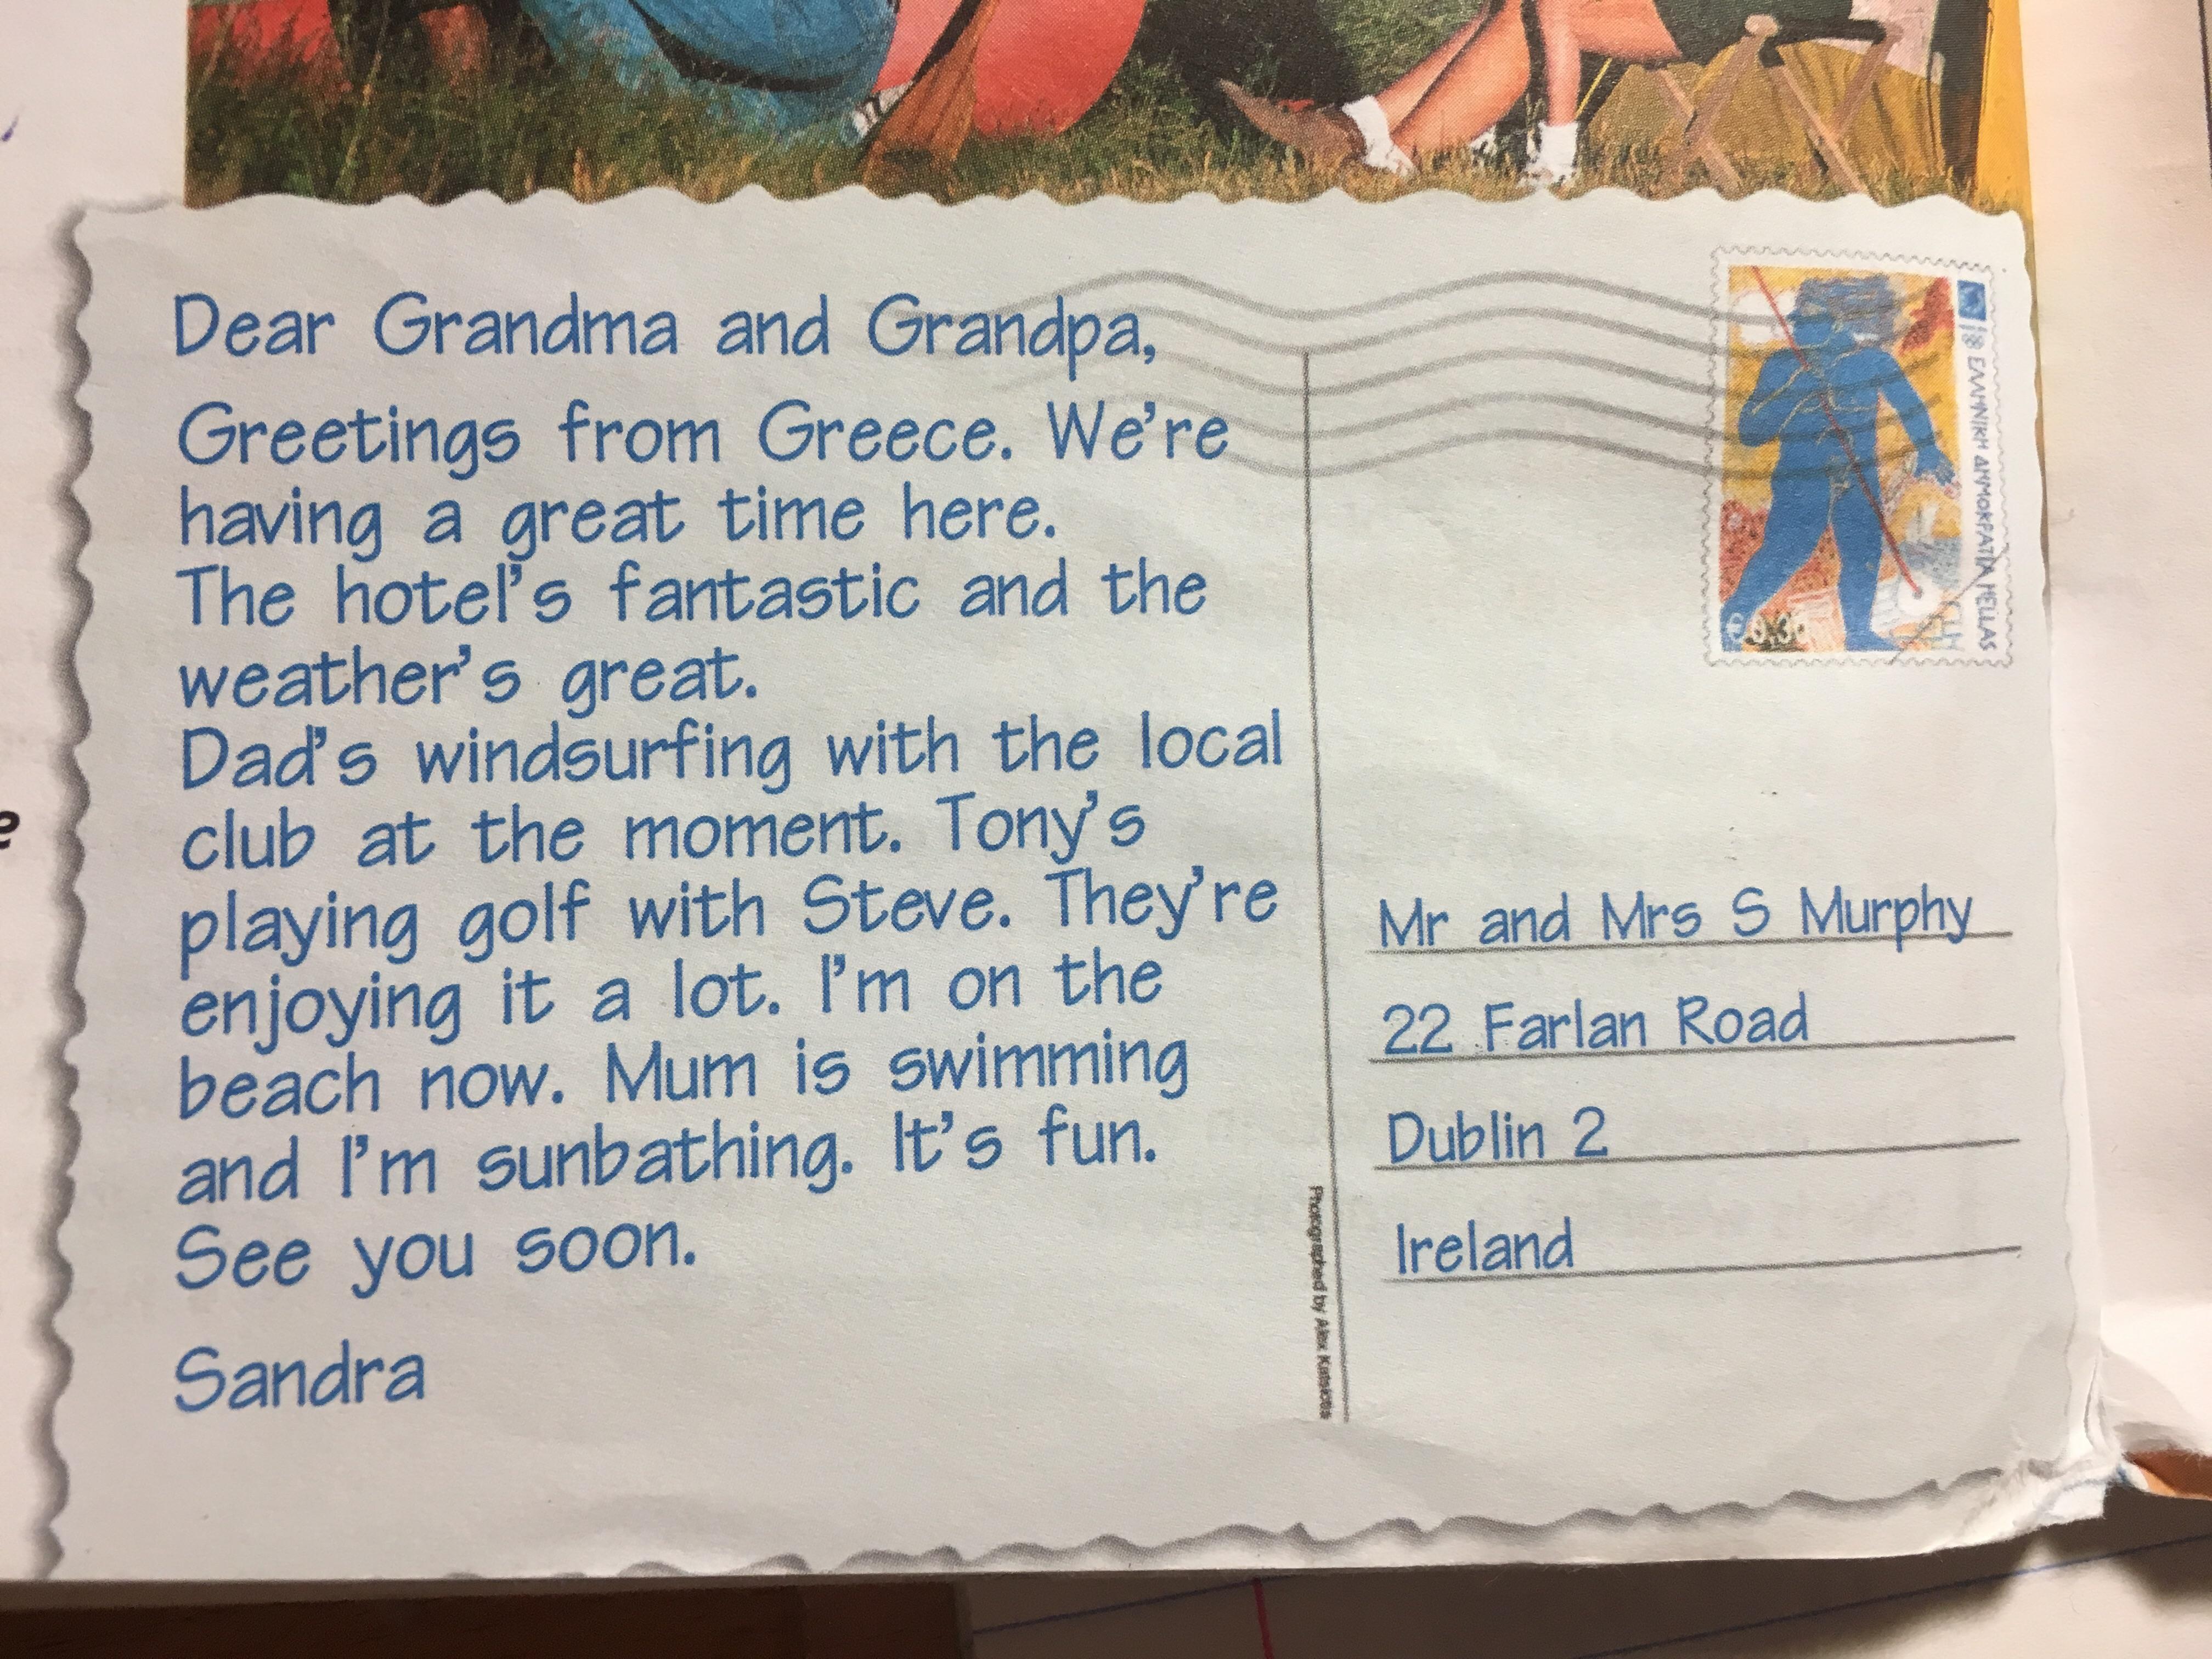 Dear Grandma and Grandpa,
Greetings from Greece. We're
having a great time here.
The hotel's fantastic and the
weather's great.
Dad's windsurfing with the local
club at the moment. Tony's
playing golf with Steve. They're
enjoying it a lot. I'm on the
beach now. Mum is swimming
and I'm sunbathing. It's fun.
See you soon.
Sandra
ΕΛΛΗΝΙΚΗ ΔΗΜΟΚΡΑΤΙΑ HELLAS
Mr and Mrs S Murphy
22 Farlan Road
Dublin 2
Ireland
Photographed by Alex
e